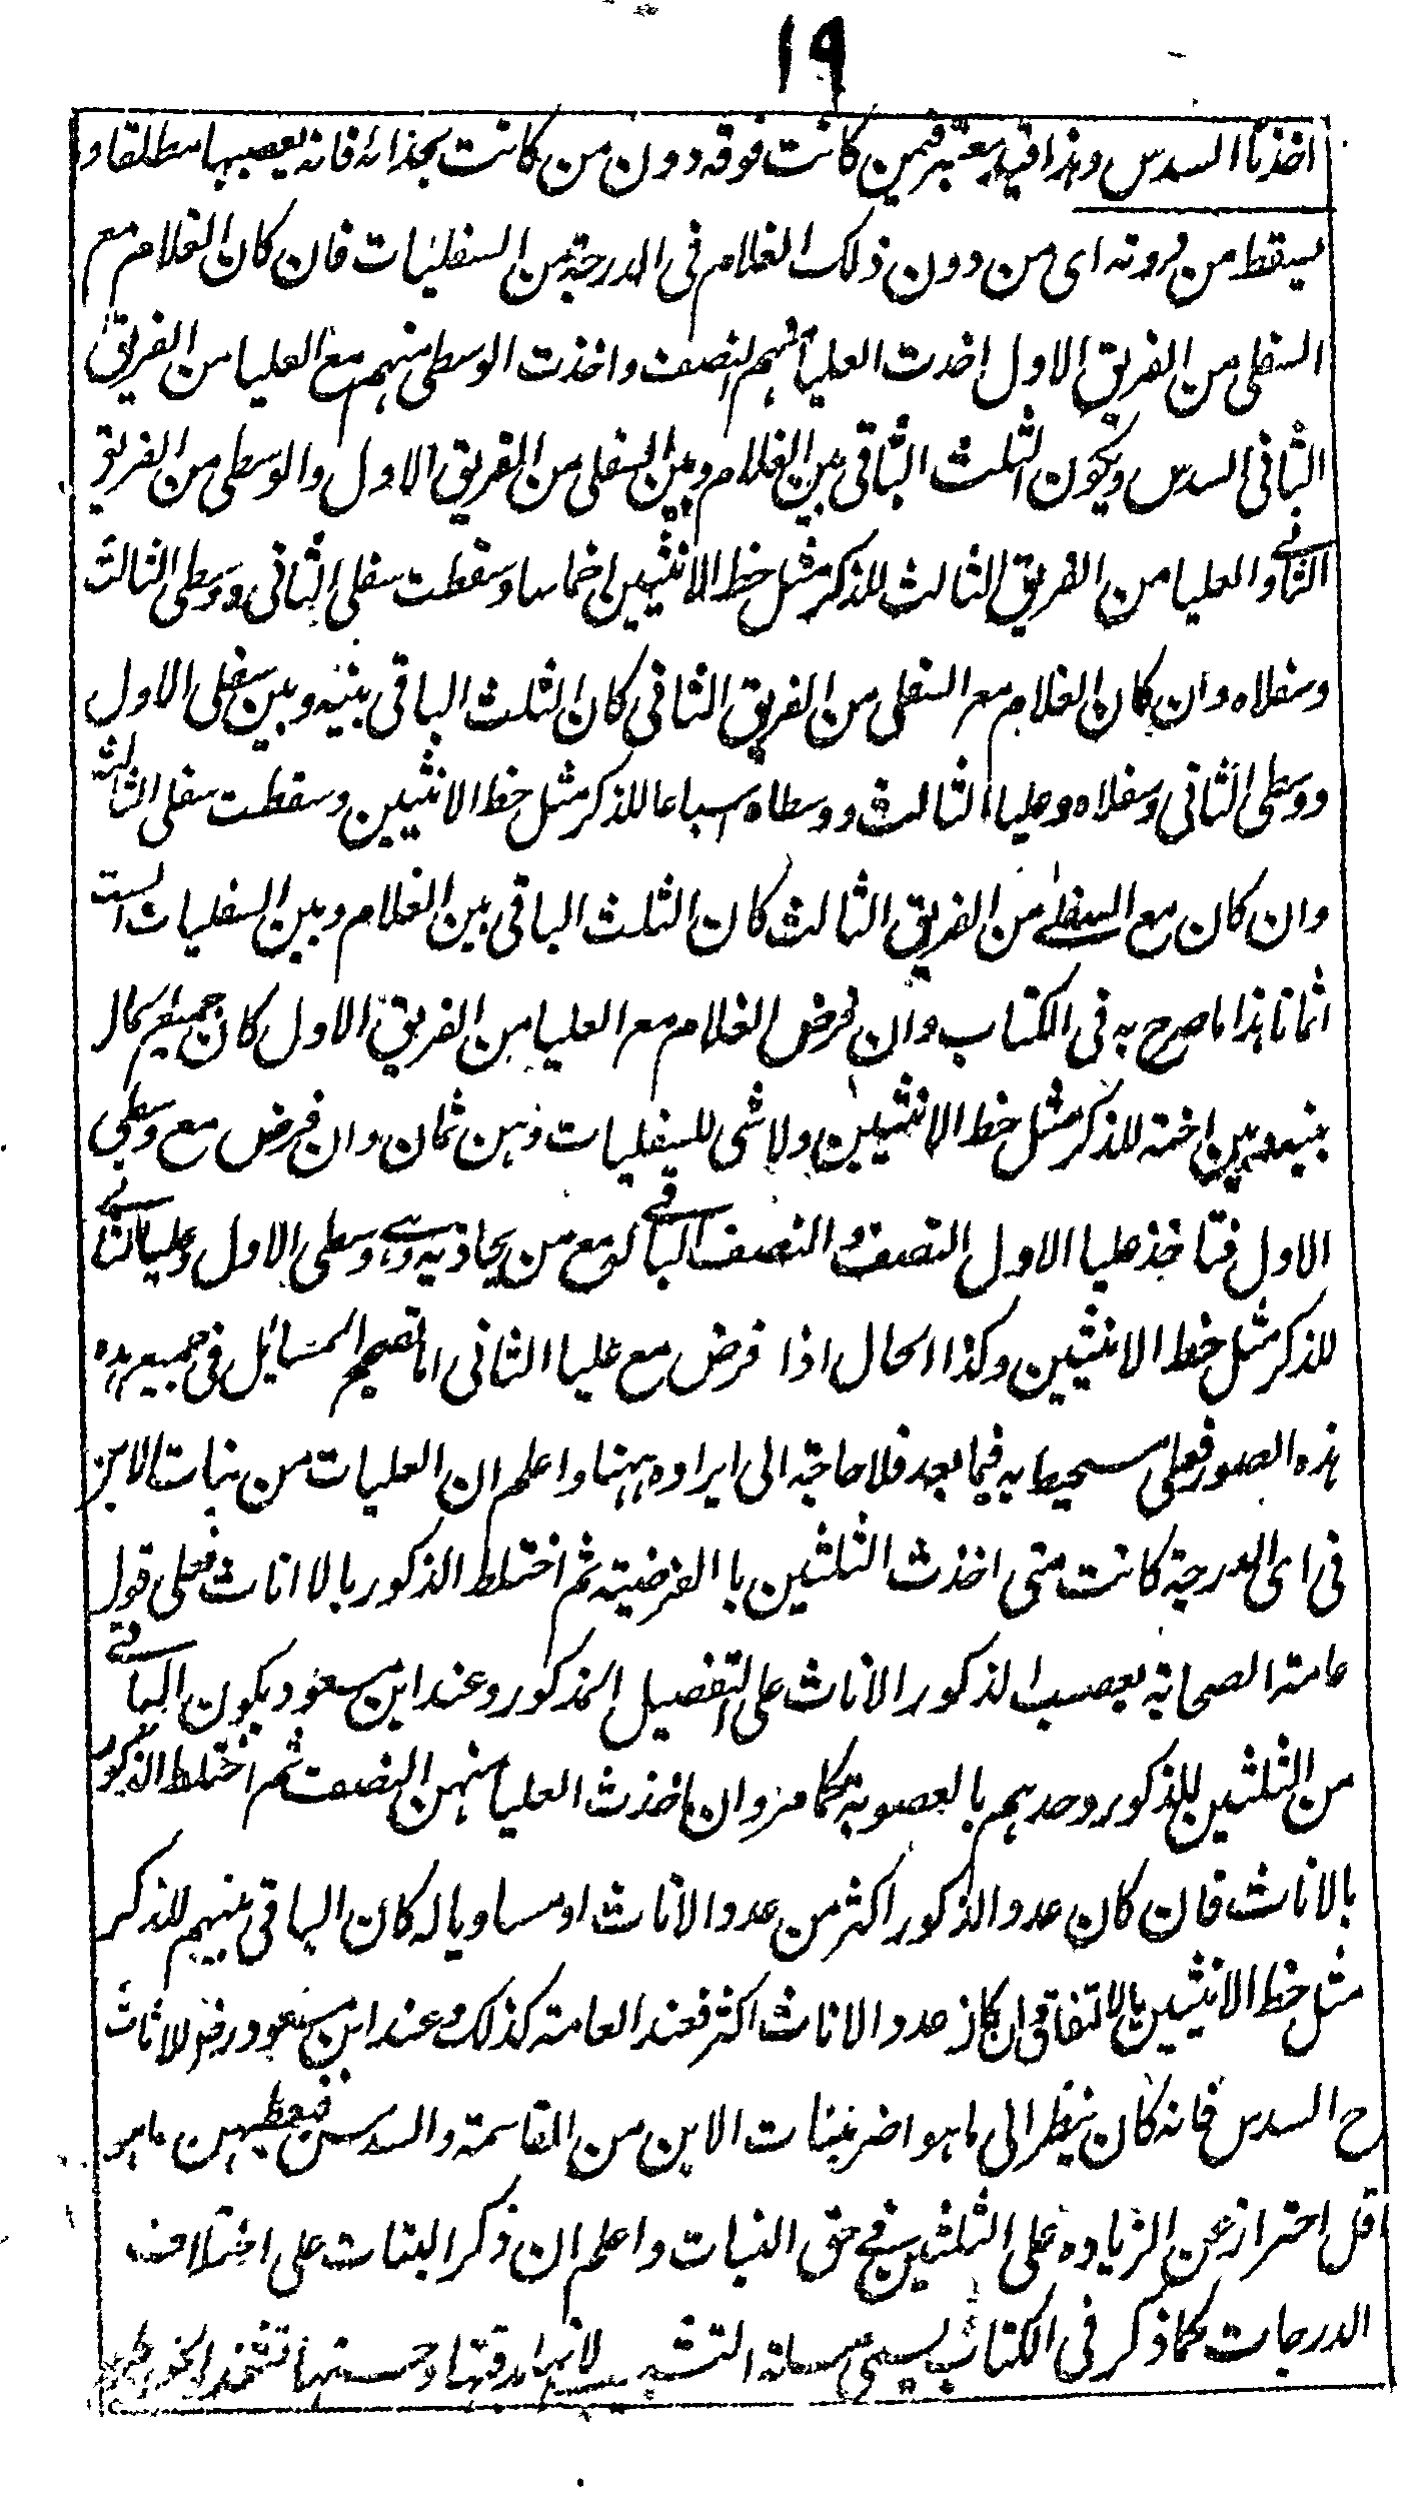 ١٩
اخذنا السدس وهذا قيد يعتبر فيمن كانت فوقه دون من كانت بحذائه فانه يعصبها مطلقا و
يسقط من دونه اى من دون ذلك الغلام فى الدرجة من السفليات فان كان الغلام مع
السفلى من الفريق الاول اخذت العليا منهم النصف واخذت الوسطى منهم مع العليا من الفريق
الثانى السدس ويكون الثلث الباقى بين الغلام وبين السفلى من الفريق الاول والوسطى من الفريق
الثانے والعليا من الفريق الثالث للذكر مثل حظ الانثيين اخماسا وسقطت سفلى الثانى ووسطى الثالث
وسفلاه وان كان الغلام مع السفلى من الفريق الثانى كان الثلث الباقى بينه وبين سفلى الاول
ووسطى الثانى وسفلاه وعليا الثالث ووسطاه اسباعا للذكر مثل حظ الانثيين وسقطت سفلى الثالث
وان كان مع السفلے من الفريق الثالث كان الثلث الباقى بين الغلام وبين السفليات الست
اثمانا هذا ما صرح به فى الكتاب وان فرض الغلام مع العليا من الفريق الاول كان جميع المال
بينه وبين اخته للذكر مثل حظ الانثيين ولا شى للسفليات وهن ثمان وان فرض مع وسطى
الاول فتاخذ عليا الاول النصف و النصف الباقے له مع من يحاذيه وهے وسطى الاول وعليا الثانے
للذكر مثل حظ الانثيين وكذا الحال اذا فرض مع عليا الثانى اما تصحيح المسائل فى جميع هذه
هذه الصور فعلى ستحيط به فيما بعد فلا حاجة الى ايراده ههنا واعلم ان العليات من بنات الابن
فى اى الدرجة كانت متى اخذت الثلثين باالفرضية ثم اختلط الذكور بالاناث فعلى قول
عامة الصحابة يعصب الذكور الاناث على التفصيل المذكور وعند ابن مسعود يكون الباقے
من الثلثين للذكور وحدهم بالعصوبة كما مر وان اخذت العليا منهن النصف ثم اختلط الذكور
بالاناث فان كان عدد الذكور اكثر من عدد الاناث او مساويا له كان الباقى بينهم للذكر
مثل حظ الانثيين بالاتفاق ان كان عدد الاناث اكثر فعند العامة كذلك وعند ابن مسعود رض للاناث
ح السدس فانه كان ينظر الى ما هو اضر ببنات الابن من المقاسمة والسدس فيعطيهن ما هو
اقل احترازعن الزياده على الثلثين فے حق البنات واعلم ان ذكر البنات على اختلاف
الدرجات كما ذكر فى الكتاب يسمى مسئلة التشبيب لانها بدقتها وحسنها تشحذ الخواطر